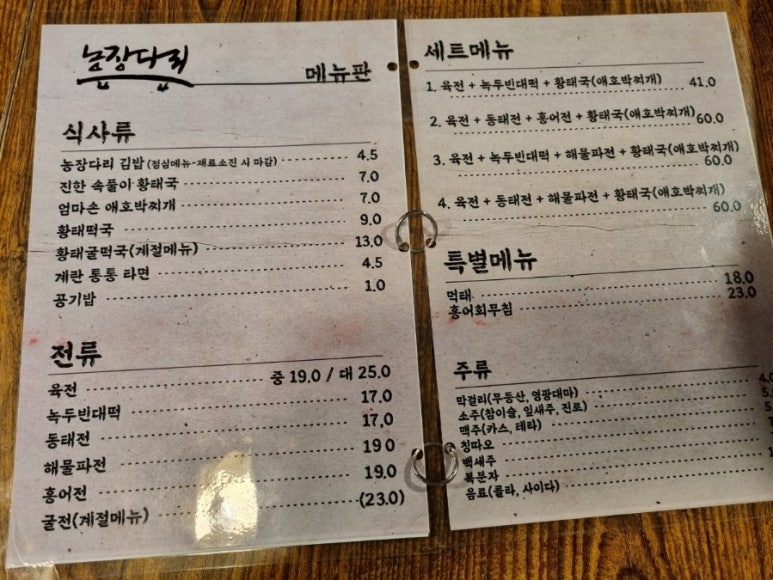 농장다리
메뉴판
식사류
농장다리 김밥 (점심메뉴-재료소진 시 마감) 4.5
진한 속풀이 황태국 7.0
엄마손 애호박찌개 7.0
황태떡국 9.0
황태굴떡국(계절메뉴) 13.0
계란 통통 라면 4.5
공기밥 1.0
전류
육전 중 19.0 / 대 25.0
녹두빈대떡 17.0
동태전 17.0
해물파전 19 0
홍어전 19.0
굴전(계절메뉴) (23.0)
세트메뉴
1. 육전 + 녹두빈대떡 + 황태국(애호박찌개) 41.0
2. 육전 + 동태전 + 홍어전 + 황태국(애호박찌개)
60.0
3. 육전 + 녹두빈대떡 + 해물파전 + 황태국(애호박찌개)
60.0
4. 육전 + 동태전 + 해물파전 + 황태국(애호박찌개)
60.0
특별메뉴
먹태 18.0
홍어회무침 23.0
주류
막걸리(무등산, 영광대마) 4.0
소주(참이슬, 잎새주, 진로)
맥주(카스, 테라)
칭따오
백세주
복분자
음료(콜라, 사이다)